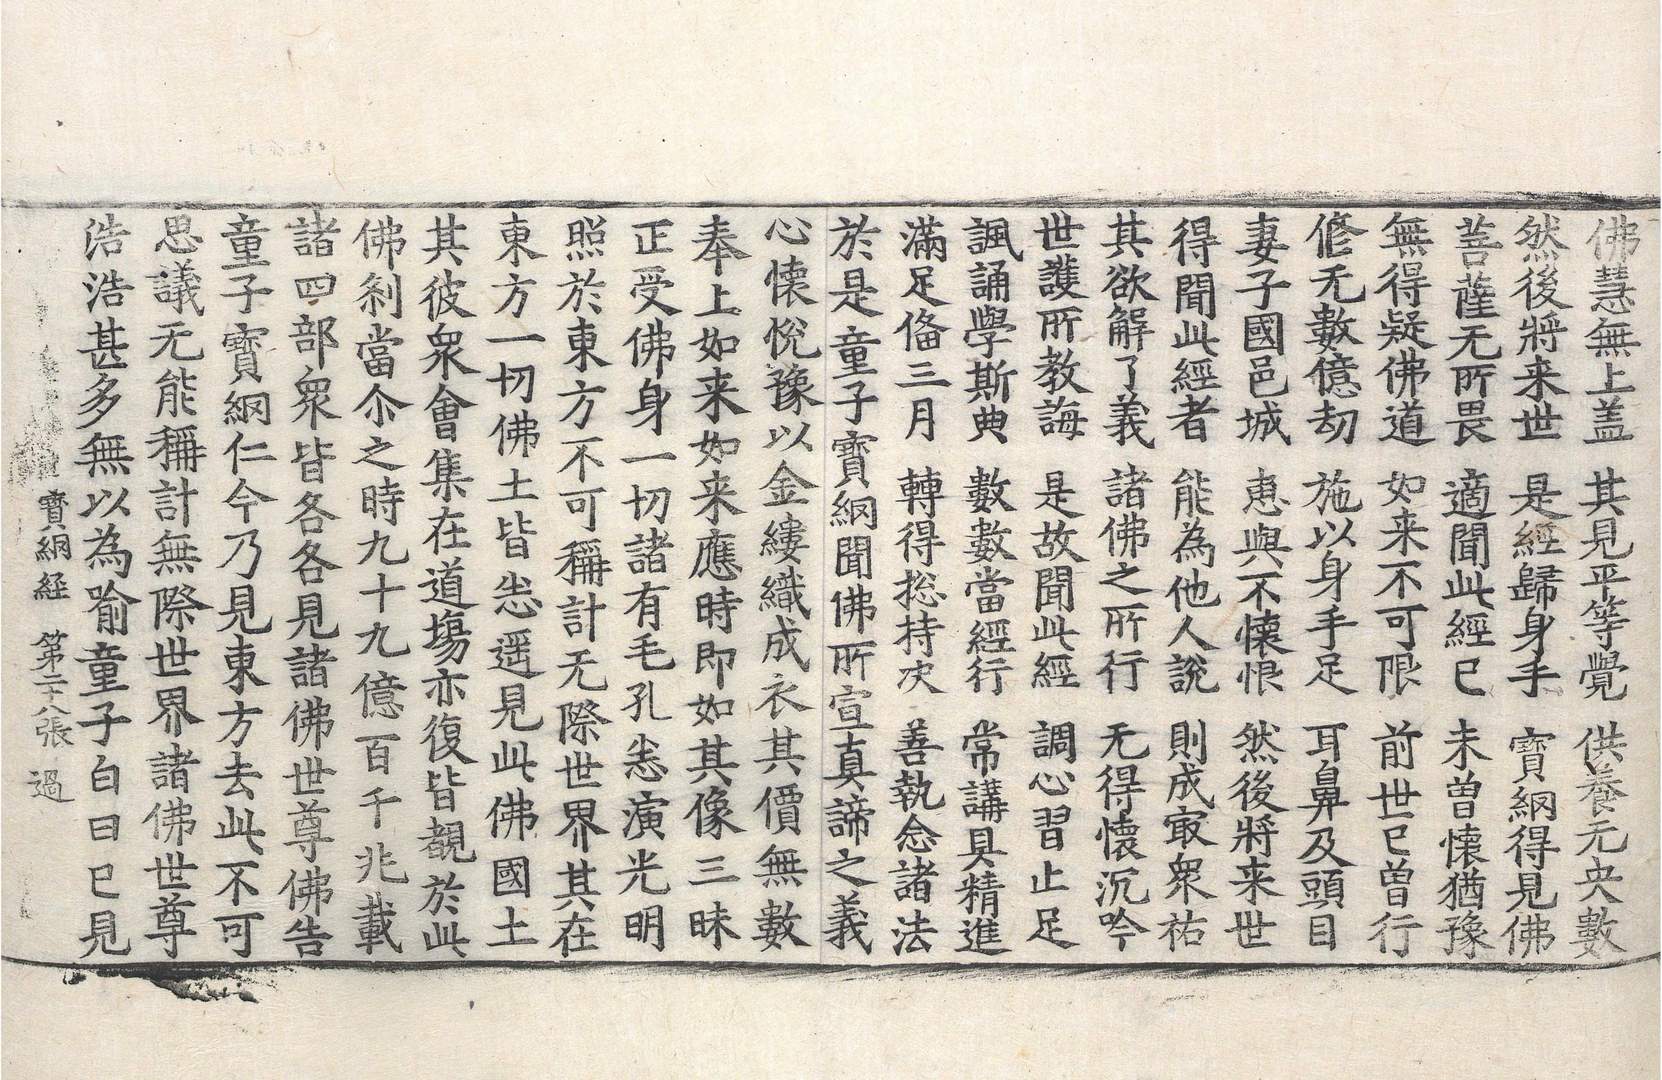 佛慧無上盖 其見平等覺 供養无央數
然後將来世 是經歸身手 寶網得見佛
菩薩无所畏 適聞此經已 未曾懷猶豫
無得疑佛道 如来不可限 前世已曾行
修无數億劫 施以身手足 耳鼻及頭目
妻子國邑城 恵與不懷恨 然後將来世
得聞此經者 能為他人說 則成㝡衆祐
其欲解了義 諸佛之所行 无得懷沉吟
世護所教誨 是故聞此經 調心習止足
諷誦學斯典 數數當經行 常講具精進
滿足俻三月 轉得㧾持决 善執念諸法
於是童子寶網聞佛所宣真諦之義
心懷悅豫以金縷織成衣其價無數
奉上如来如来應時即如其像三昧
正受佛身一切諸有毛孔悉演光明
照於東方不可稱計无際世界其在
東方一切佛土皆悉遥見此佛國土
其彼衆會集在道場亦復皆覩於此
佛刹當尒之時九十九億百千兆載
諸四部衆皆各各見諸佛世尊佛告
童子寶網仁今乃見東方去此不可
思議无能稱計無際世界諸佛世尊
浩浩甚多無以為喻童子白曰已見
寶網經 第二十八張 過